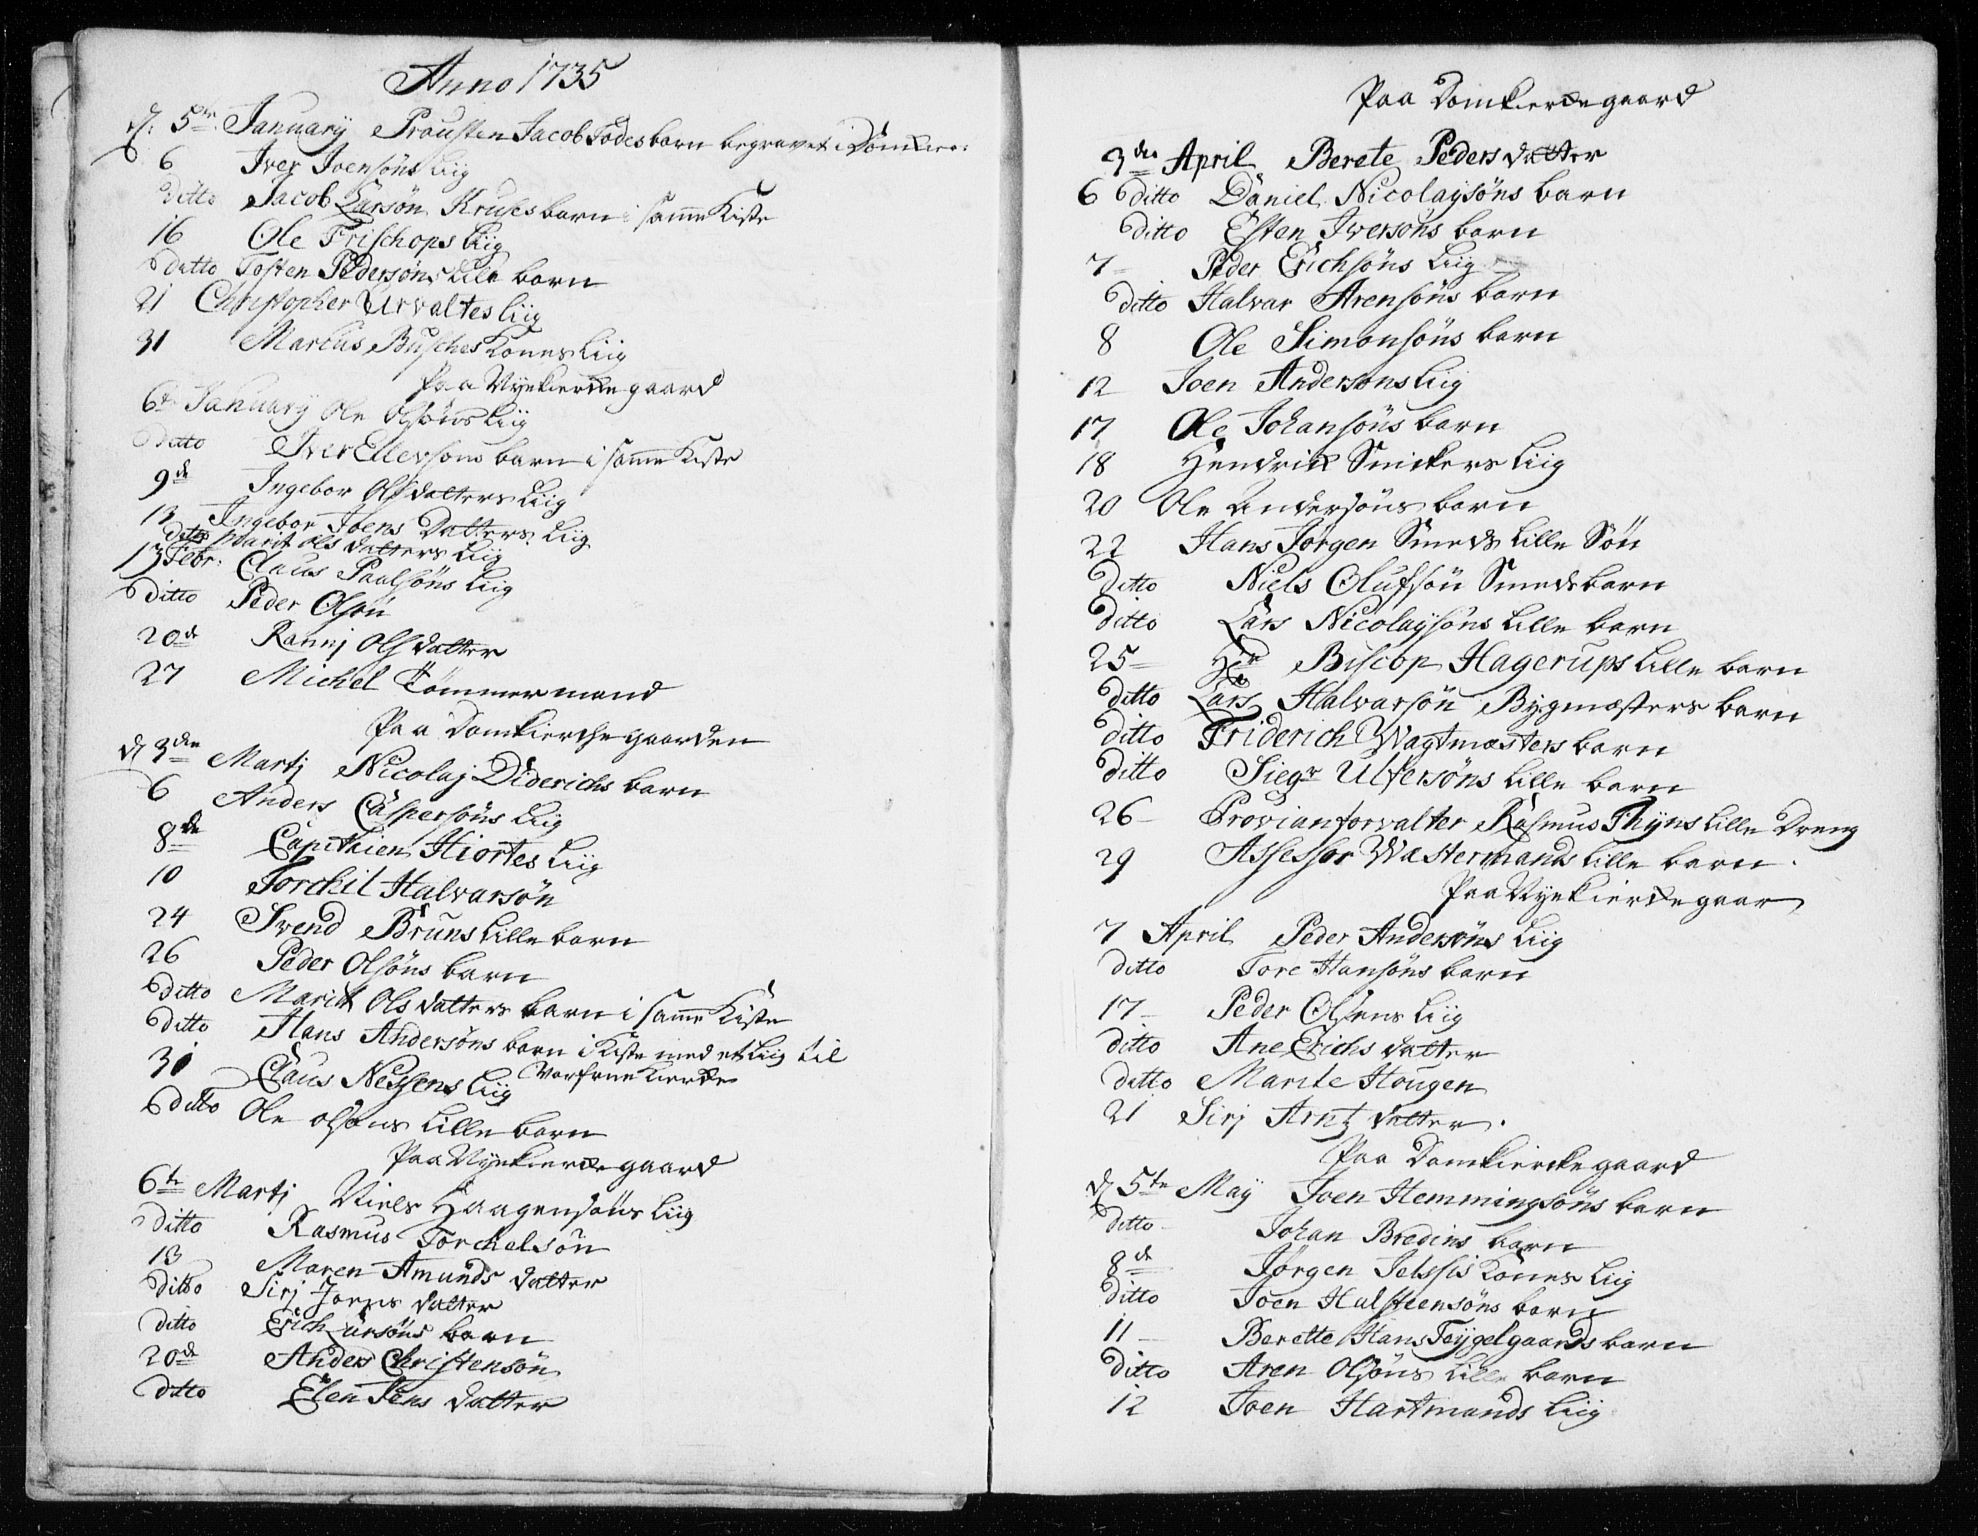 Anno 1735
d. 5te January Prousten Jacob Todes barn begravet i Domkier:
6 Iver Joensøns Liig
ditto Jacob Larsøn Kruses barn i samme Kiste
16 Ole Frischops Liig
ditto Tosten Pedersøns Lille barn
21 Christopher Urvaltes Liig
31 Marcus Busches Kones Liig
Paa Nyekierkegaard
6te January Ole Olsøns Liig
ditto Iver Ellevsøns barn i samme Kiste
9de Ingebor Olsdatters Liig
13 Ingebor Joens Datters Liig
ditto Marit Olsdatters Liig
13 Febr: Claus Paalsøns Liig
ditto Peder Olsøn
20de Rannj Olsdatter
27 Michel Tømmermand
Paa Domkierche gaarden
d 3die Martj Nicolaj Diderichs barn
6 Anders Caspersøns Liig
8de Capithien Hiortes Liig
10 Torchil Halvarsøn
24 Svend Bruns Lille barn
26 Peder Olsøns barn
ditto Marit Olsdatters barn i samme Kiste
ditto Hans Andersøns barn i Kiste med et Liig til
Vorfrue Kierke
31 Claus Neissens Liig
ditto Ole Olsøns Lille barn
Paa Nyekierkegaard
6te Martj Niels Haagensøns Liig
ditto Rasmus Torchelsøn
13 Maren Amunds datter
ditto Sirj Joens datter
ditto Erich Larsøns barn
20de Anders Christensøn
ditto Elen Jens datter
Paa Domkierkegaard
3die April Berete Pedersdatter
6 ditto Daniel Nicolaysøns barn
ditto Esten Iversøns barn
7 Peder Erichsøns Liig
ditto Halvar Arensøns barn
8 Ole Simonsøns barn
12 Joen Andersons Liig
17 Ole Johansøns barn
18 Hendrik Smickers Liig
20 Ole Andersøns barn
22 Hans Jørgen Smeds Lille Søn
ditto Niels Olufsøn Smeds barn
ditto Lars Nicolaysøns Lille barn
25 Biscop Hagerups Lille barn
ditto Lars Halvarsøn Bygmæsters barn
ditto Friderich Wagtmæsters barn
ditto Siegr Ulfersøns Lille barn
26 Provianforvalter Rasmus Thyns Lille Dreng
29 Assessor Wæstermands Lille barn.
Paa Nyekierkegaar
7 April Peder Andersøns Liig
ditto Tore Hansøns barn
17 Peder Olsens Liig
ditto Ane Erichs datter
ditto Marite Hougen
21 Sirj Arntz datter.
Paa Domkiercke gaard
d 5te May Joen Hemmingsøns barn
ditto Johan Bredins barn
8de Jørgen Kones Liig
ditto Joen Halsteensøns barn
11 Berette Hans Teygelgaards barn
ditto Aren Olsøns Lille barn
12 Joen Hartmands Liig